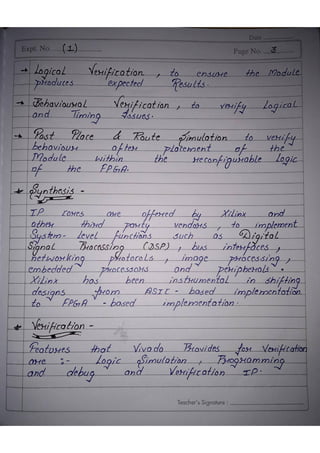 Date
Expt. No. (1)
Page No. 3
→ Logical Verification , to ensure the Module
produces expected Results.
→ Behavioural Verification , to verify Logical
and Timing Issues.
→ Post Place & Route Simulation to verify
behaviour after placement of the
Module within the reconfigurable logic
of the FPGA.
* Synthesis -
IP cores are offered by Xilinx and
other third party vendors , to implement
System- Level functions such as Digital
Signal Processing (DSP) , bus interfaces ,
networking protocols , image processing ,
embedded processors and peripherals .
Xilinx has been instrumental in shifting
designs from ASIC - based implementation
to FPGA - based implementation
* Verification -
Features that Vivado Provides for Verification
are :- Logic Simulation , Programming
and debug and Verification IP.
Teacher's Signature :